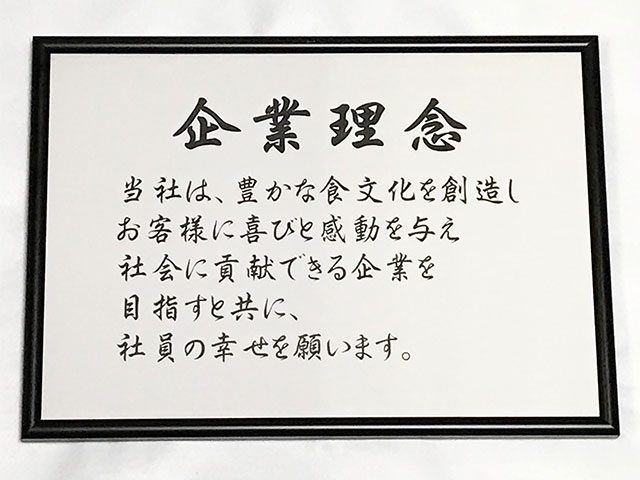 企業理念
当社は、豊かな食文化を創造し
お客様に喜びと感動を与え
社会に貢献できる企業を
目指すと共に、
社員の幸せを願います。